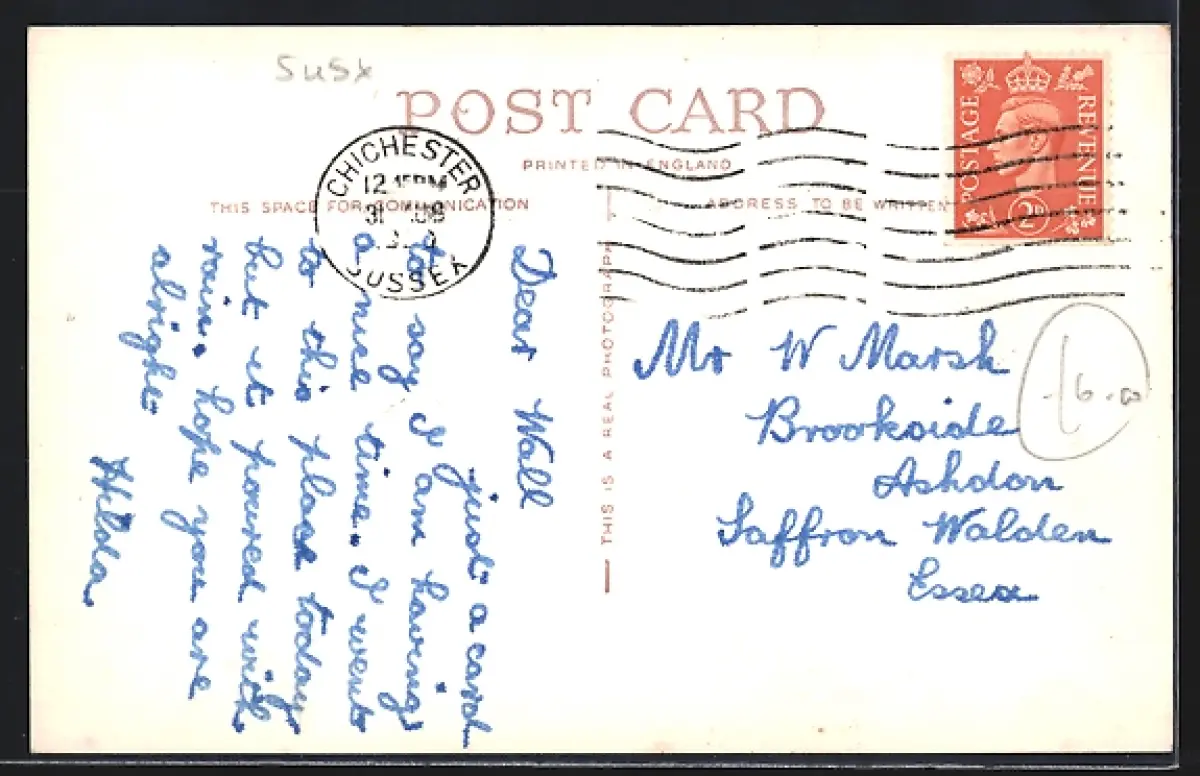 Susx
POST CARD
PRINTED IN ENGLAND
THIS SPACE FOR COMMUNICATION
ADDRESS TO BE WRITTEN
CHICHESTER
12 15 PM
31
SUSSEX
POSTAGE
REVENUE
2D
THIS IS A REAL PHOTOGRAPH
Dear Wall
just a card
to say I am having
a nice time. I went
to this place today
but it poured with
rain. hope you are
alright.
Hilda
Mr W Marsh
Brookside
Ashdon
Saffron Walden
Essex